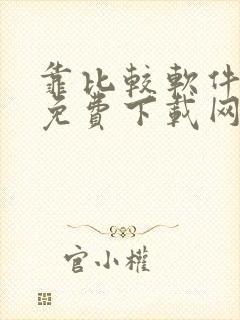 靠比較軟件
免費下載网
官小權